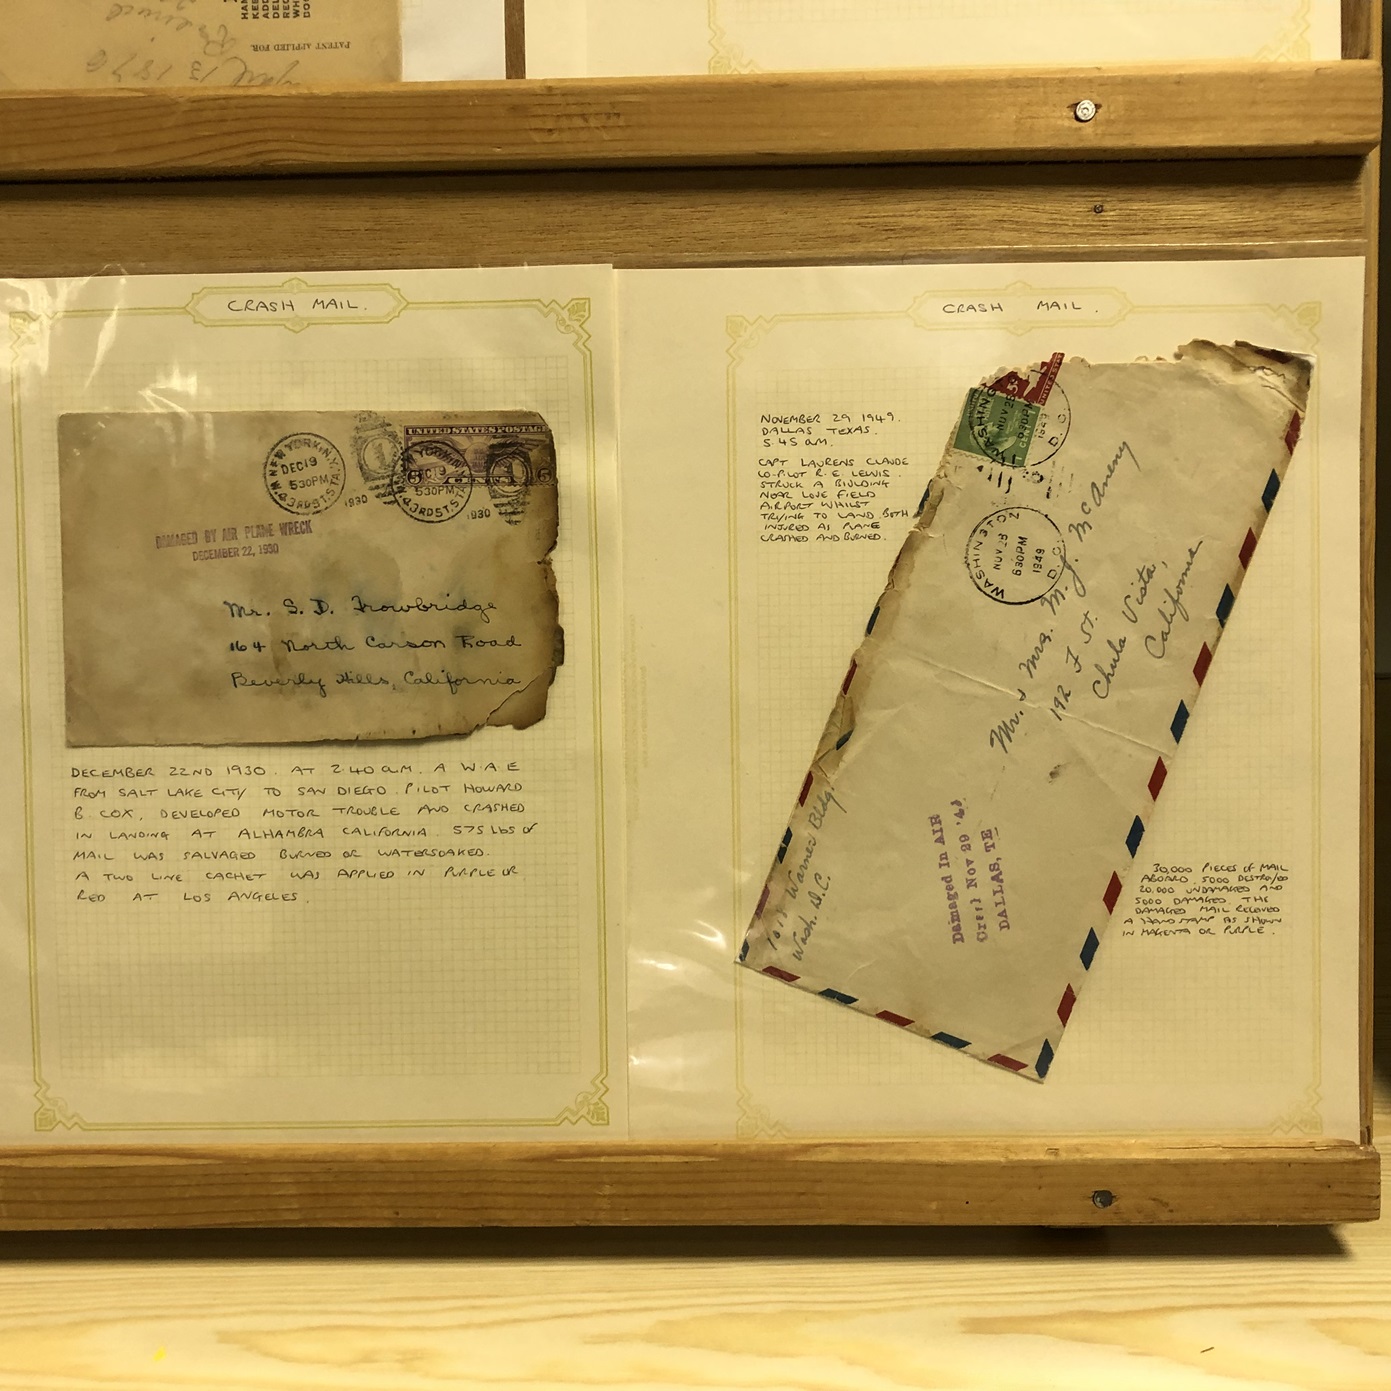 PATENT APPLIED FOR.
CRASH MAIL.
NEW YORK, N.Y.
DEC 19
5 30 PM
43RD ST. STA.
1930
UNITED STATES POSTAGE
NEW YORK, N.Y.
DEC 19
5 30 PM
43RD ST. STA.
1930
DAMAGED BY AIR PLANE WRECK
DECEMBER 22, 1930
Mr. S. D. Trowbridge
164 North Carson Road
Beverly Hills, California
DECEMBER 22ND 1930. AT 2.40 a.m. A W.A.E
FROM SALT LAKE CITY TO SAN DIEGO. PILOT HOWARD
B. COX, DEVELOPED MOTOR TROUBLE AND CRASHED
IN LANDING AT ALHAMBRA CALIFORNIA. 575 Lbs of
MAIL WAS SALVAGED BURNED OR WATERSOAKED.
A TWO LINE CACHET WAS APPLIED IN PURPLE OR
RED AT LOS ANGELES.
CRASH MAIL.
NOVEMBER 29 1949.
DALLAS TEXAS.
5.45 a.m.
CAPT LAURENS CLAUDE
CO-PILOT R.E. LEWIS.
STRUCK A BIULDING
NEAR LOVE FIELD
AIRPORT WHILST
TRYING TO LAND. BOTH
INJURED AS PLANE
CRASHED AND BURNED.
WASHINGTON
NOV 28
6 30 PM
1949
D.C.
WASHINGTON
NOV 28
6 30 PM
1949
D.C.
Mr. & Mrs. M. J. McAneny
192 F St.
Chula Vista,
California
Warner Bldg.
Wash. D.C.
Damaged In AIR
Nov 29 '49
DALLAS, TE
30,000 PIECES OF MAIL
ABOARD. 5000 DESTROYED
20,000 UNDAMAGED AND
5000 DAMAGED. THE
DAMAGED MAIL RECEIVED
A HAND STAMP AS SHOWN
IN MAGENTA OR PURPLE.